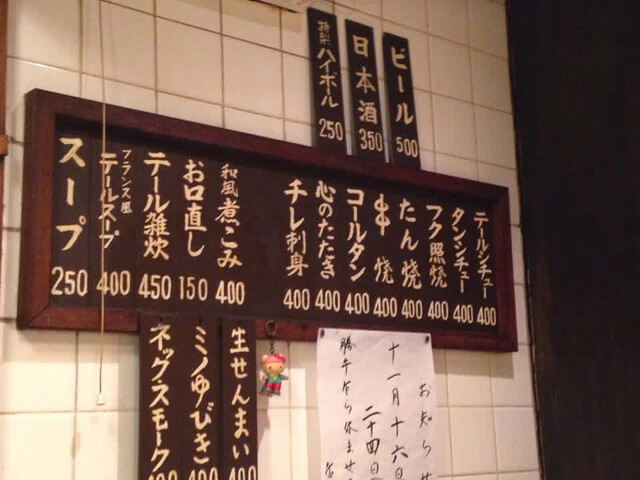 ビール 500
日本酒 350
特製ハイボール 250
テールシチュー 400
タンシチュー 400
フク照焼 400
たん焼 400
串焼 400
コールタン 400
心のたたき 400
チレ刺身 400
和風煮こみ 400
お口直し 150
テール雑炊 450
フランス風テールスープ 400
スープ 250
生せんまい 400
ミノゆびき 400
ネックスモーク 400
お知らせ
十一月十六日
二十四日
勝手乍ら休ませ